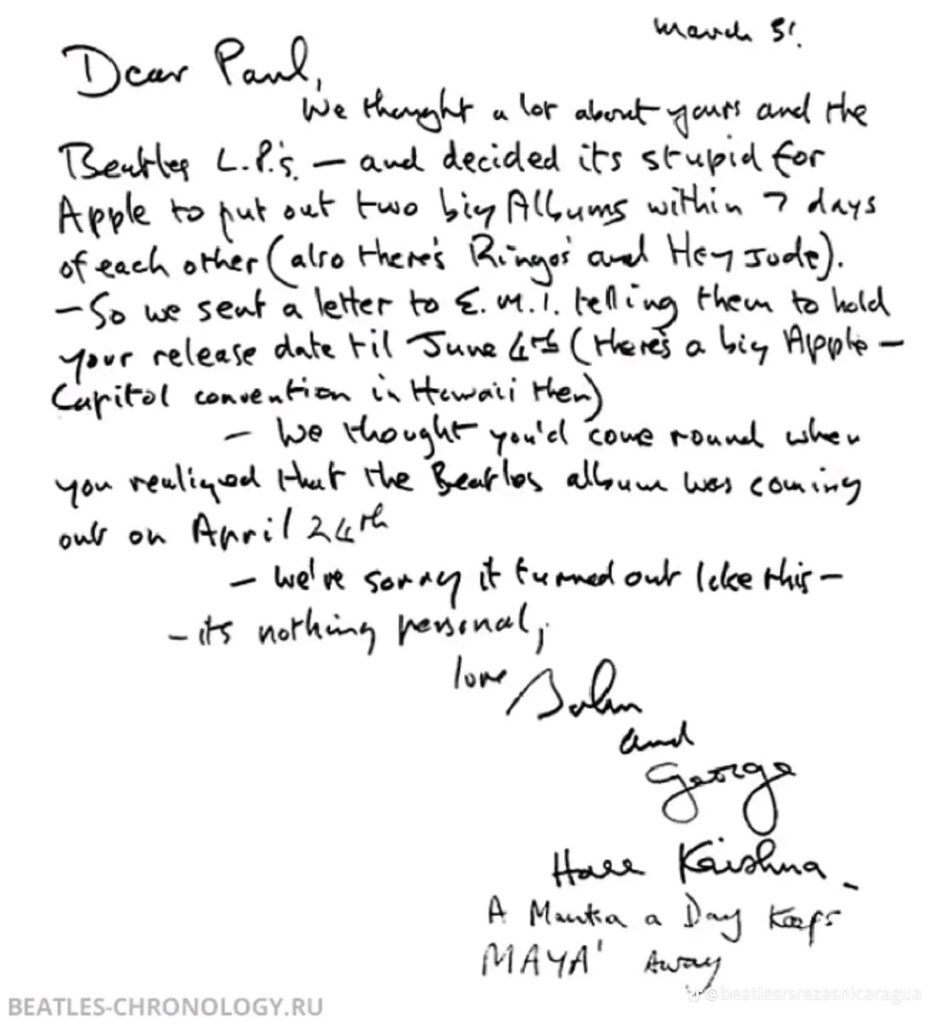 March 31.
Dear Paul,
We thought a lot about yours and the
Beatles L.P.'s. — and decided its stupid for
Apple to put out two big Albums within 7 days
of each other (also there's Ringo's and Hey Jude).
— So we sent a letter to E.M.I. telling them to hold
your release date til June 4th (there's a big Apple —
Capitol convention in Hawaii then)
— We thought you'd come round when
you realized that the Beatles album was coming
out on April 24th
— we're sorry it turned out like this —
— its nothing personal,
love John
and
George
Hare Krishna
A Mantra a Day Keeps
MAYA' Away
BEATLES-CHRONOLOGY.RU
@beatlesrsrezasnicaragua